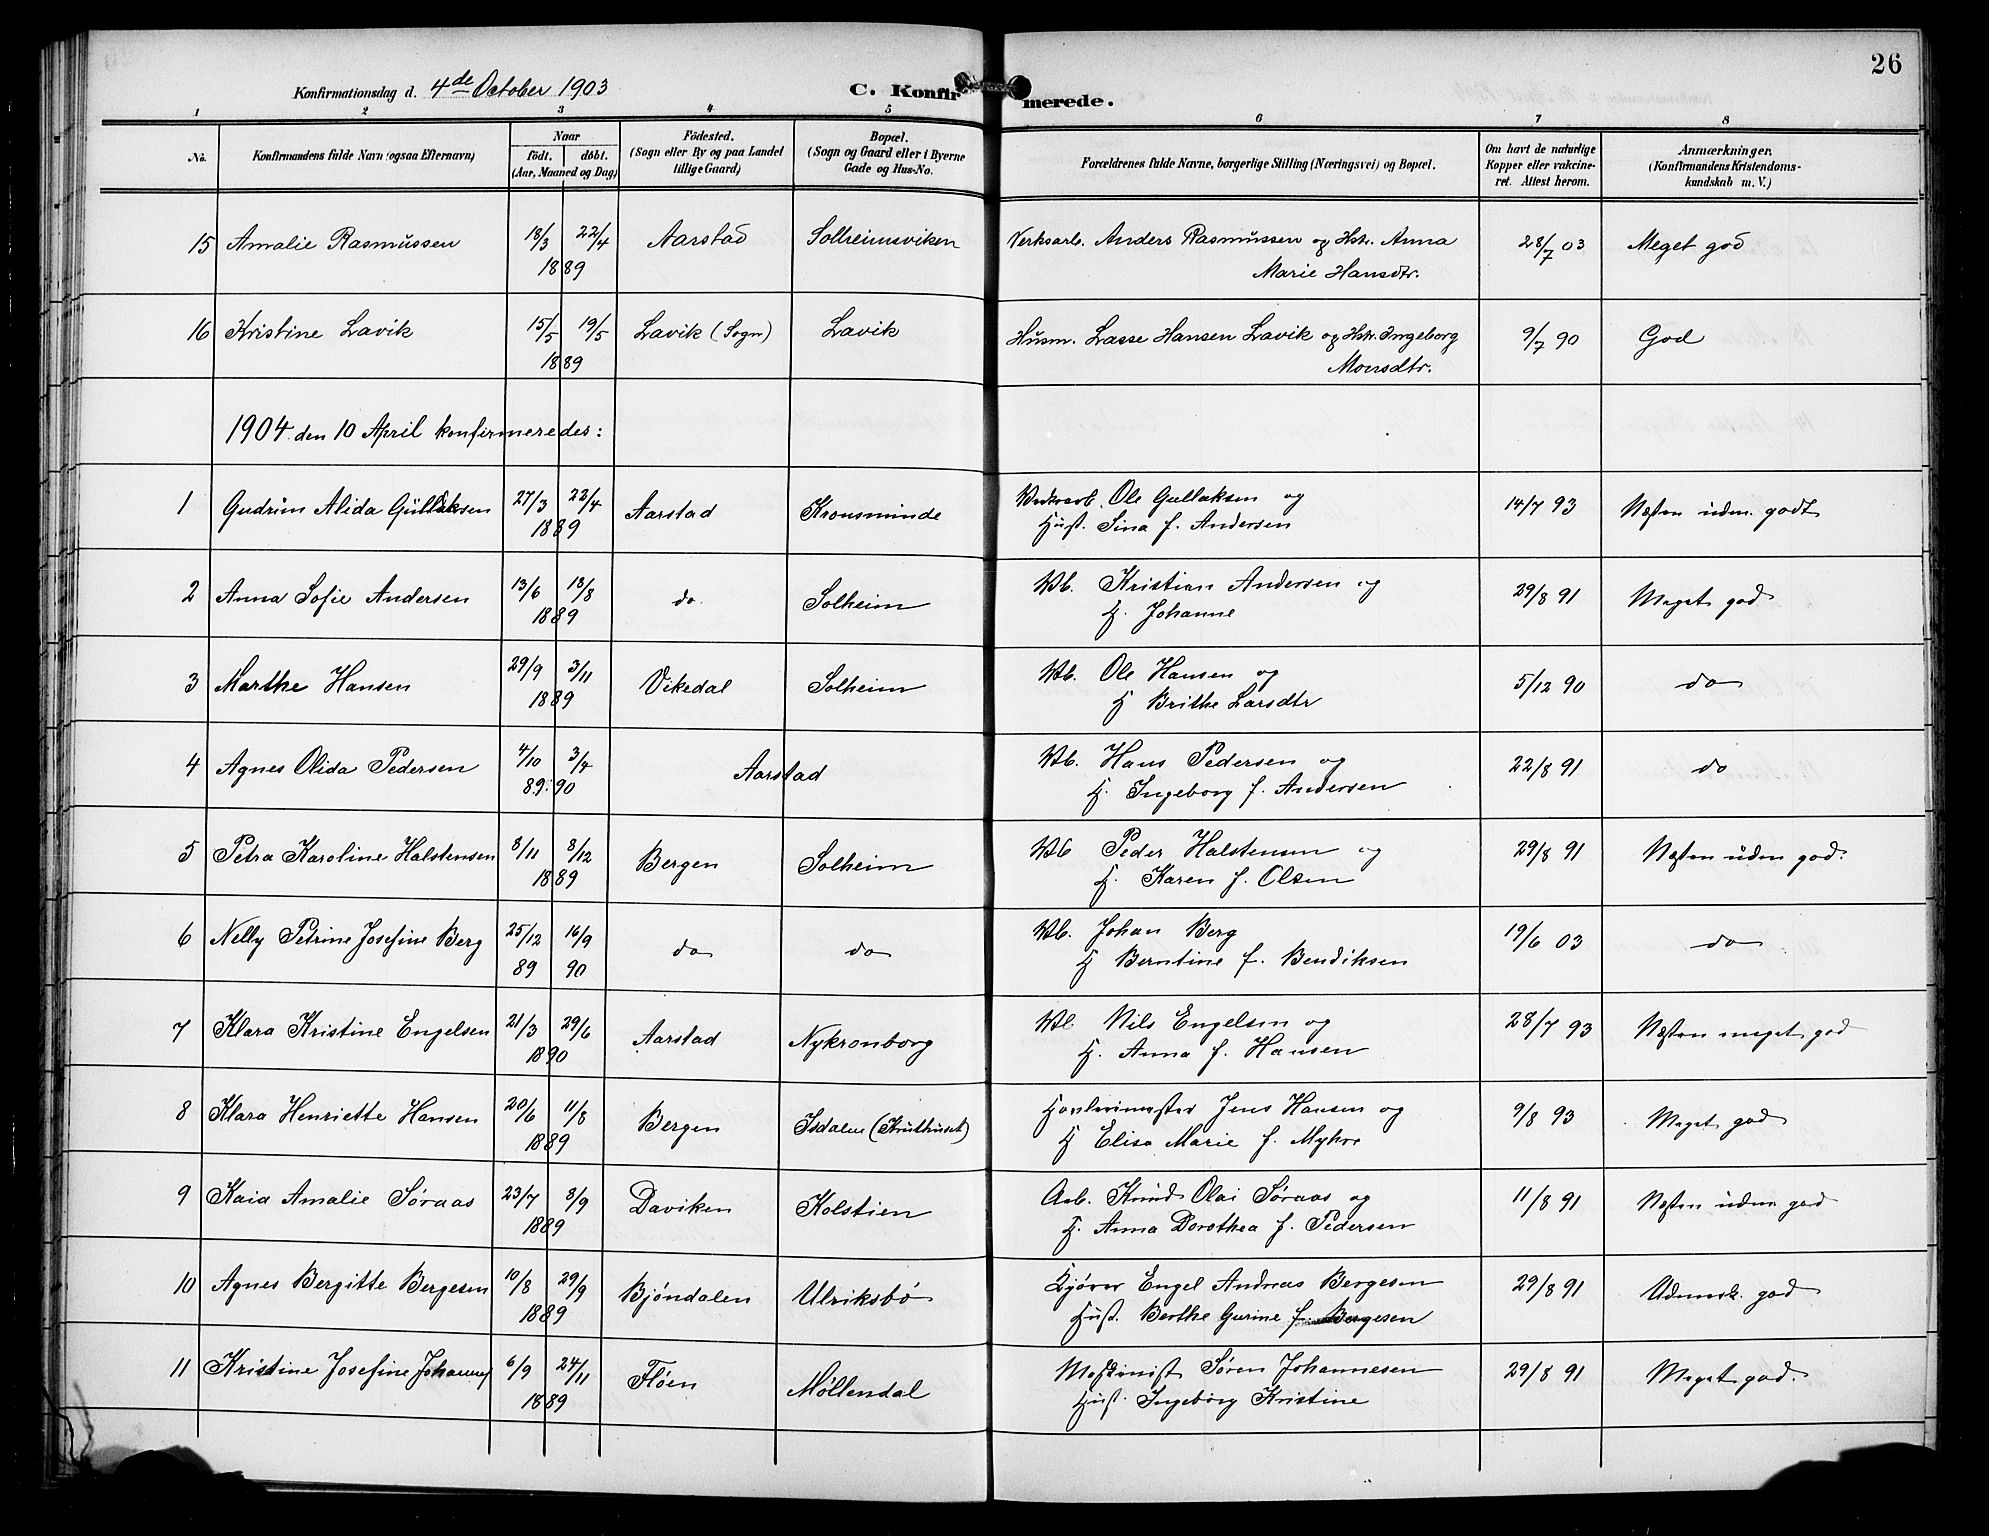 26
Konfirmationsdag d. 4de October 1903
C. Konfirmerede.
1 2 3 4 5 6 7 8
No. Konfirmandens fulde Navn (ogsaa Efternavn) Naar födt. döbt. (Aar, Maaned og Dag) Födested. (Sogn eller By og paa Landet tillige Gaard) Bopæl. (Sogn og Gaard eller i Byerne Gade og Hus-No. Forældrenes fulde Navne, borgerlige Stilling (Næringsvei) og Bopæl. Om havt de naturlige Kopper eller vakcineret. Attest herom. Anmærkninger, (Konfirmandens Kristendomskundskab m. V.)
15 Amalie Rasmussen 18/3 22/4 Aarstad Solheimsviken Verksarb. Anders Rasmussen og Hstr. Anna 28/7 03 Meget god
1889 Marie Hansdtr.
16 Kristine Lavik 15/5 19/5 Lavik (Sogn) Lavik Husm. Lasse Hansen Lavik og Hstr. Ingeborg 9/7 90 God
1889 Monsdtr.
1904 den 10 April konfirmeredes:
1 Gudrun Alida Gullaksen 27/3 22/4 Aarstad Kronsminde Verksarb. Ole Gullaksen og 14/7 93 Næsten udm. godt
1889 Hust. Sina f. Andersen
2 Anna Sofie Andersen 13/6 18/8 do. Solheim Vb. Kristian Andersen og 29/8 91 Meget god
1889 H. Johanne
3 Marthe Hansen 29/9 3/11 Vikedal Solheim Vb. Ole Hansen og 5/12 90 do
1889 H Brithe Larsdtr
4 Agnes Olida Pedersen 4/10 3/4 Aarstad Vb. Hans Pedersen og 22/8 91 do
89. 90 H. Ingeborg f. Andersen
5 Petra Karoline Halstensen 8/11 8/12 Bergen Solheim Vb Peder Halstensen og 29/8 91 Næsten udm god.
1889 H. Karen f. Olsen
6 Nelly Petrine Josefine Berg 25/12 16/9 do do Vb. Johan Berg 19/6 03 do
89 90 H Berntine f. Bendiksen
7 Klara Kristine Engelsen 21/3 29/6 Aarstad Nykronborg Vb Nils Engelsen og 28/7 93 Næsten meget god
1890 H. Anna f. Hansen
8 Klara Henriette Hansen 20/6 11/8 Bergen Isdalen (Kruthuset) Jens Hansen og 9/8 93 Meget god
1889 H Elisa Marie f. Myhre
9 Kaia Amalie Søraas 23/7 8/9 Daviken Kolstien Arb. Knud Olai Søraas og 11/8 91 Næsten udm god
1889 H. Anna Dorothea f. Pedersen
10 Agnes Bergitte Bergesen 10/8 29/9 Bjöndalen Ulriksbö Kjører Engel Andreas Bergesen 29/8 91 Udmerk. god
1889 Hust. Berthe Gurine f. Bergesen
11 Kristine Josefine Johannes 6/9 24/11 Flöen Möllendal Maskinist Søren Johannesen 29/8 91 Meget god.
1889 Hust. Ingeborg Kristine